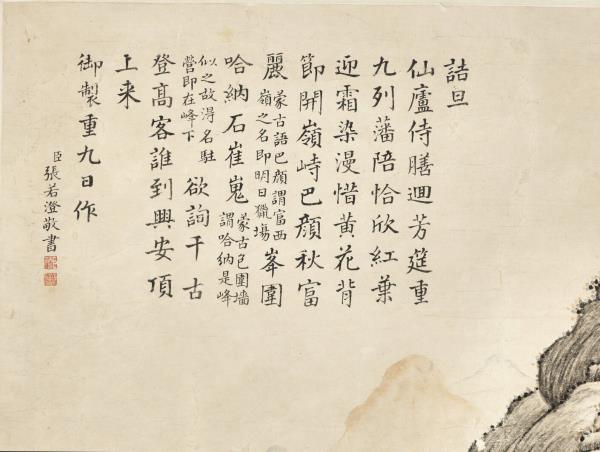 詰旦
仙廬侍膳迴芳筵重
九列藩陪恰欣紅葉
迎霜染漫惜黃花背
節開嶺峙巴顏秋富
麗蒙古語巴顏謂富西嶺之名即明日獵場峯圍
哈納石崔嵬蒙古包圍墻謂哈納是峰
似之故得名駐營即在峰下欲詢千古
登高客誰到興安頂
上来
御製重九日作
臣張若澄敬書